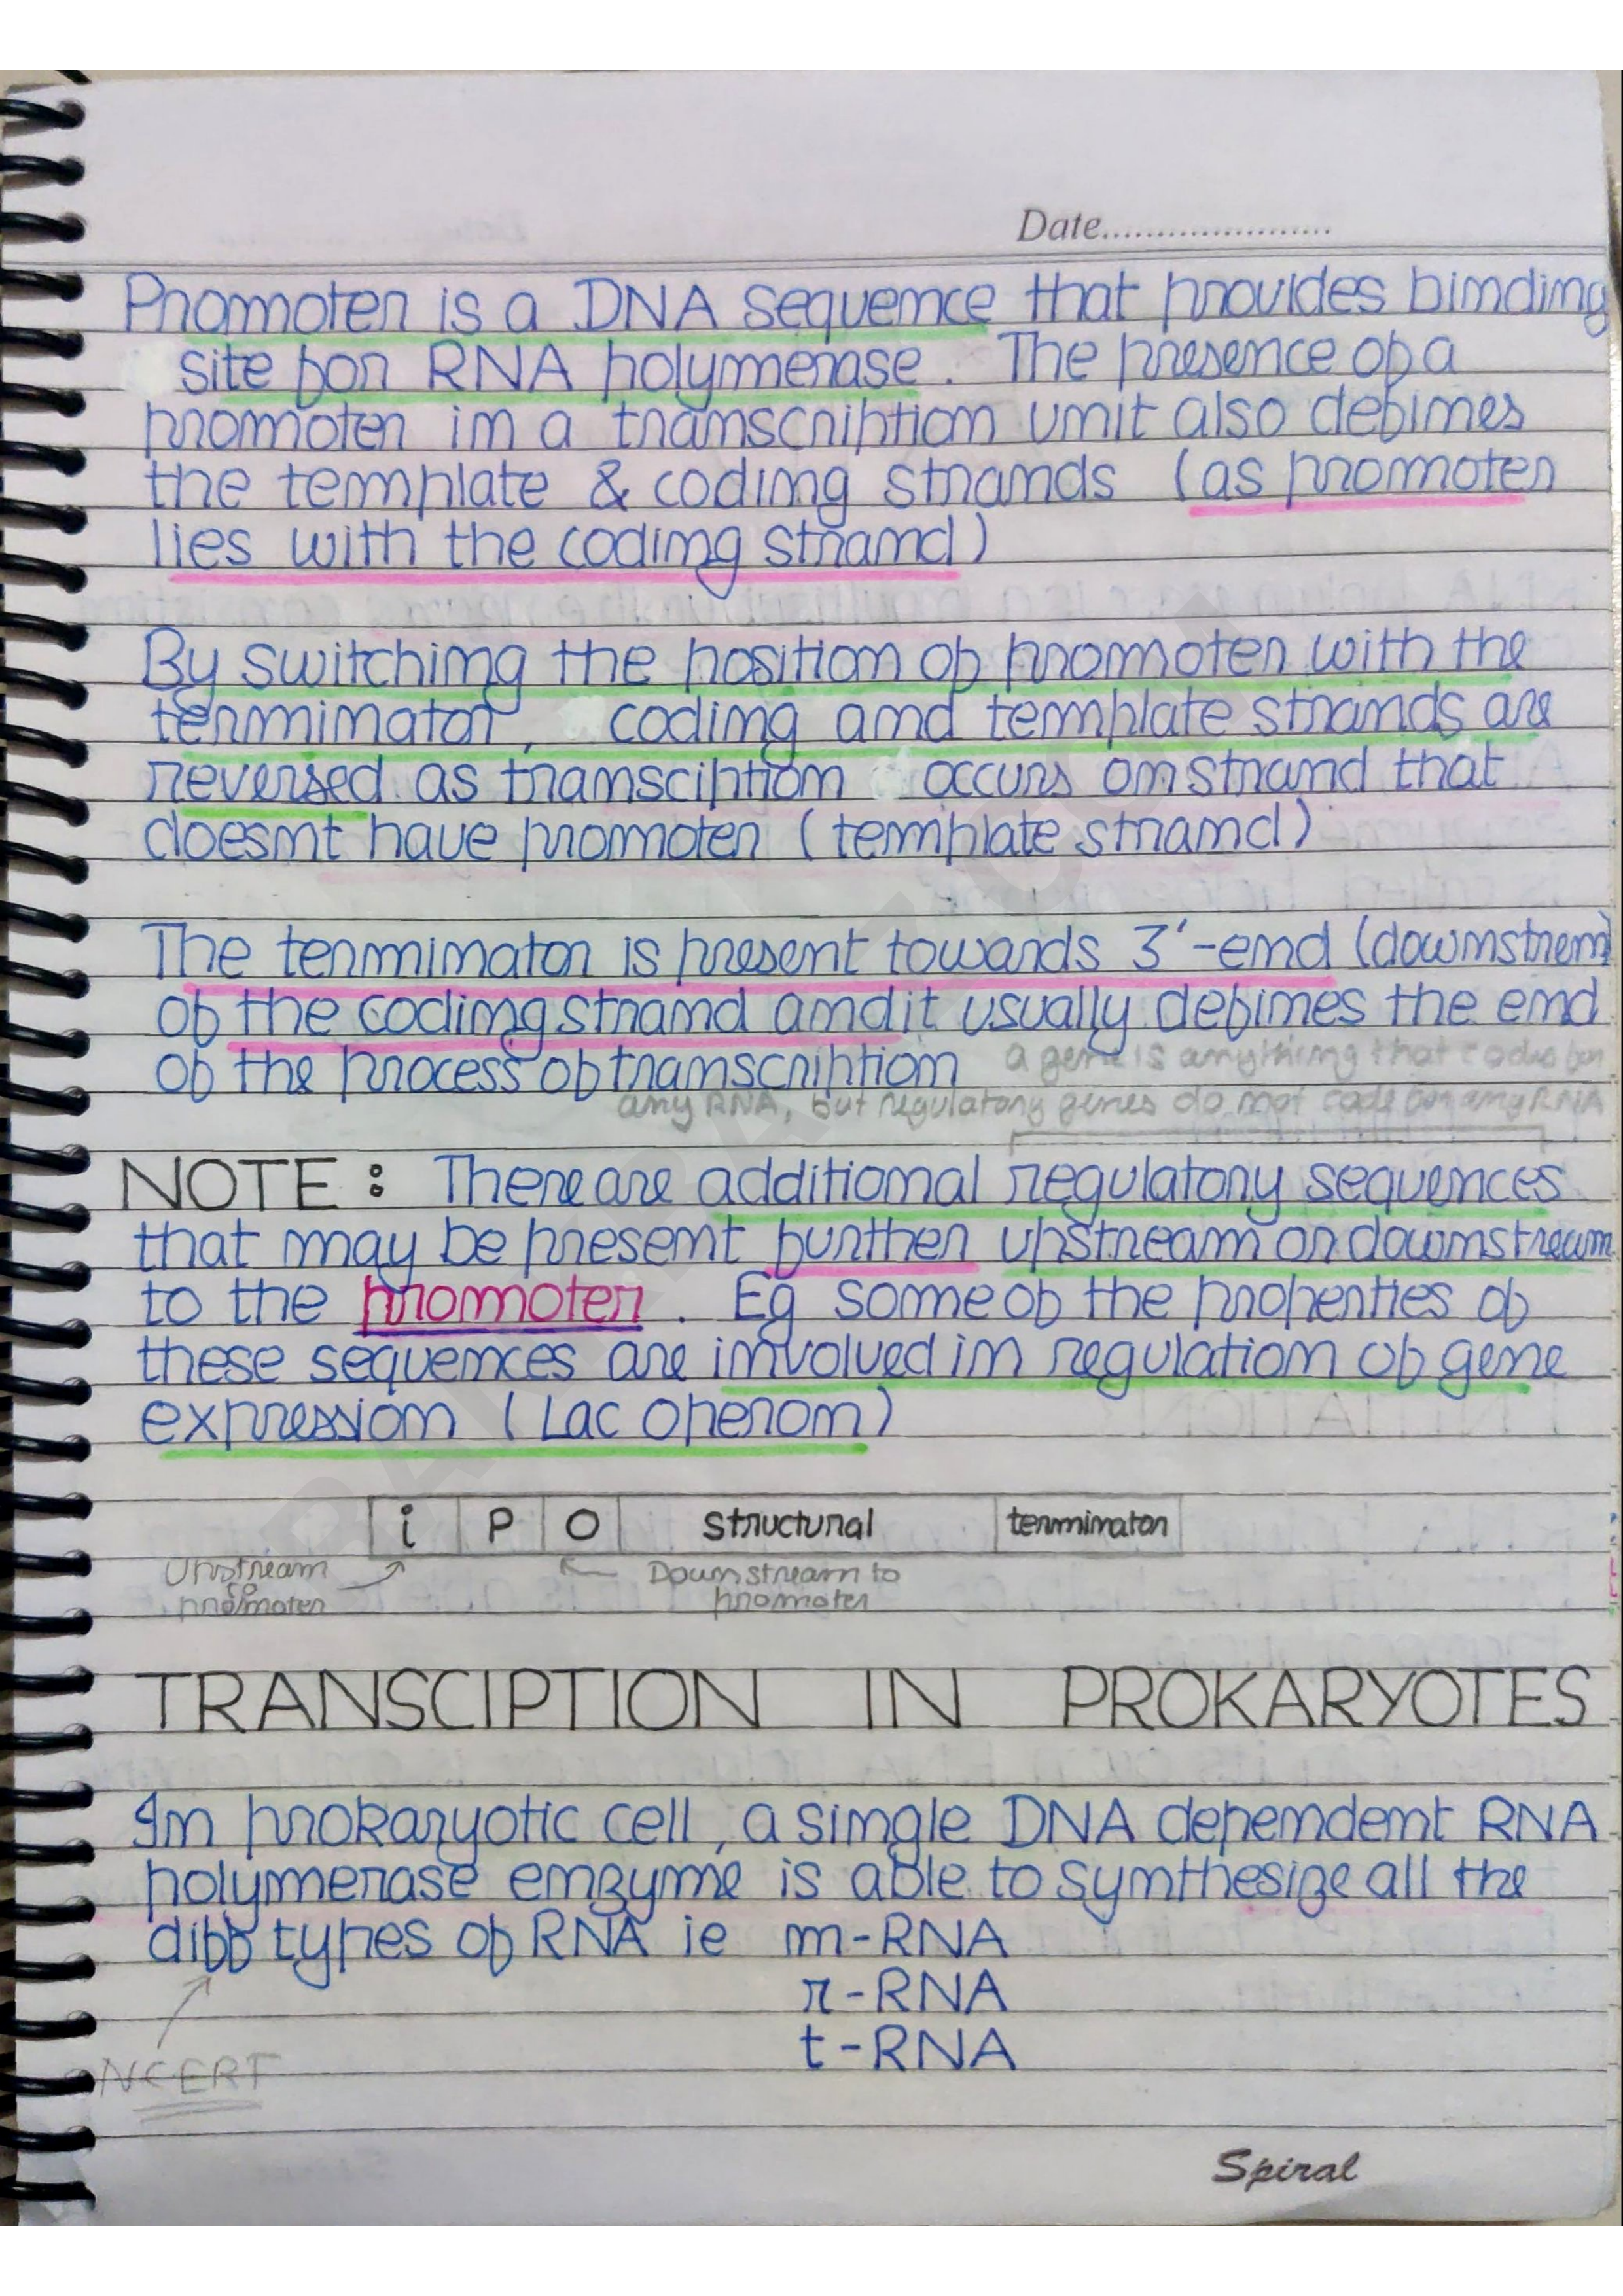 Date
Promoter is a DNA sequence that provides binding
site for RNA polymerase. The presence of a
promoter in a transcription unit also defines
the template & coding strands (as promoter
lies with the coding strand)
By switching the position of promoter with the
terminator, coding and template strands are
reversed as transciption occurs on strand that
doesnt have promoter (template strand)
The terminator is present towards 3'-end (downstrem)
of the coding strand and it usually defines the end
of the process of transcription
a gene is anything that codes for
any RNA, but regulatory genes do not code for any RNA
NOTE: There are additional regulatory sequences
that may be present further upstream or downstream
to the promoter. Eg some of the properties of
these sequences are involved in regulation of gene
expression (Lac operon)
i P O structural terminator
Upstream to promoter
Downstream to promoter
TRANSCIPTION IN PROKARYOTES
In prokaryotic cell, a single DNA dependent RNA
polymerase enzyme is able to synthesize all the
diff types of RNA ie m-RNA
r-RNA
t-RNA
NCERT
Spiral